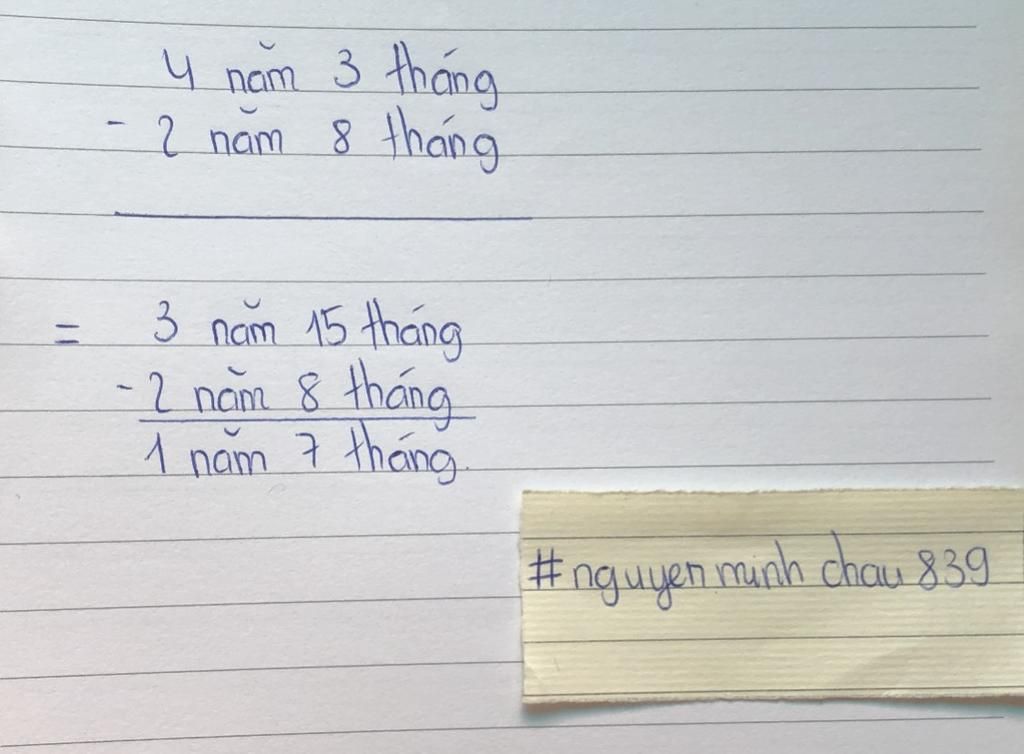 4 năm 3 tháng
- 2 năm 8 tháng
= 3 năm 15 tháng
- 2 năm 8 tháng
1 năm 7 tháng.
#nguyenminhchau839